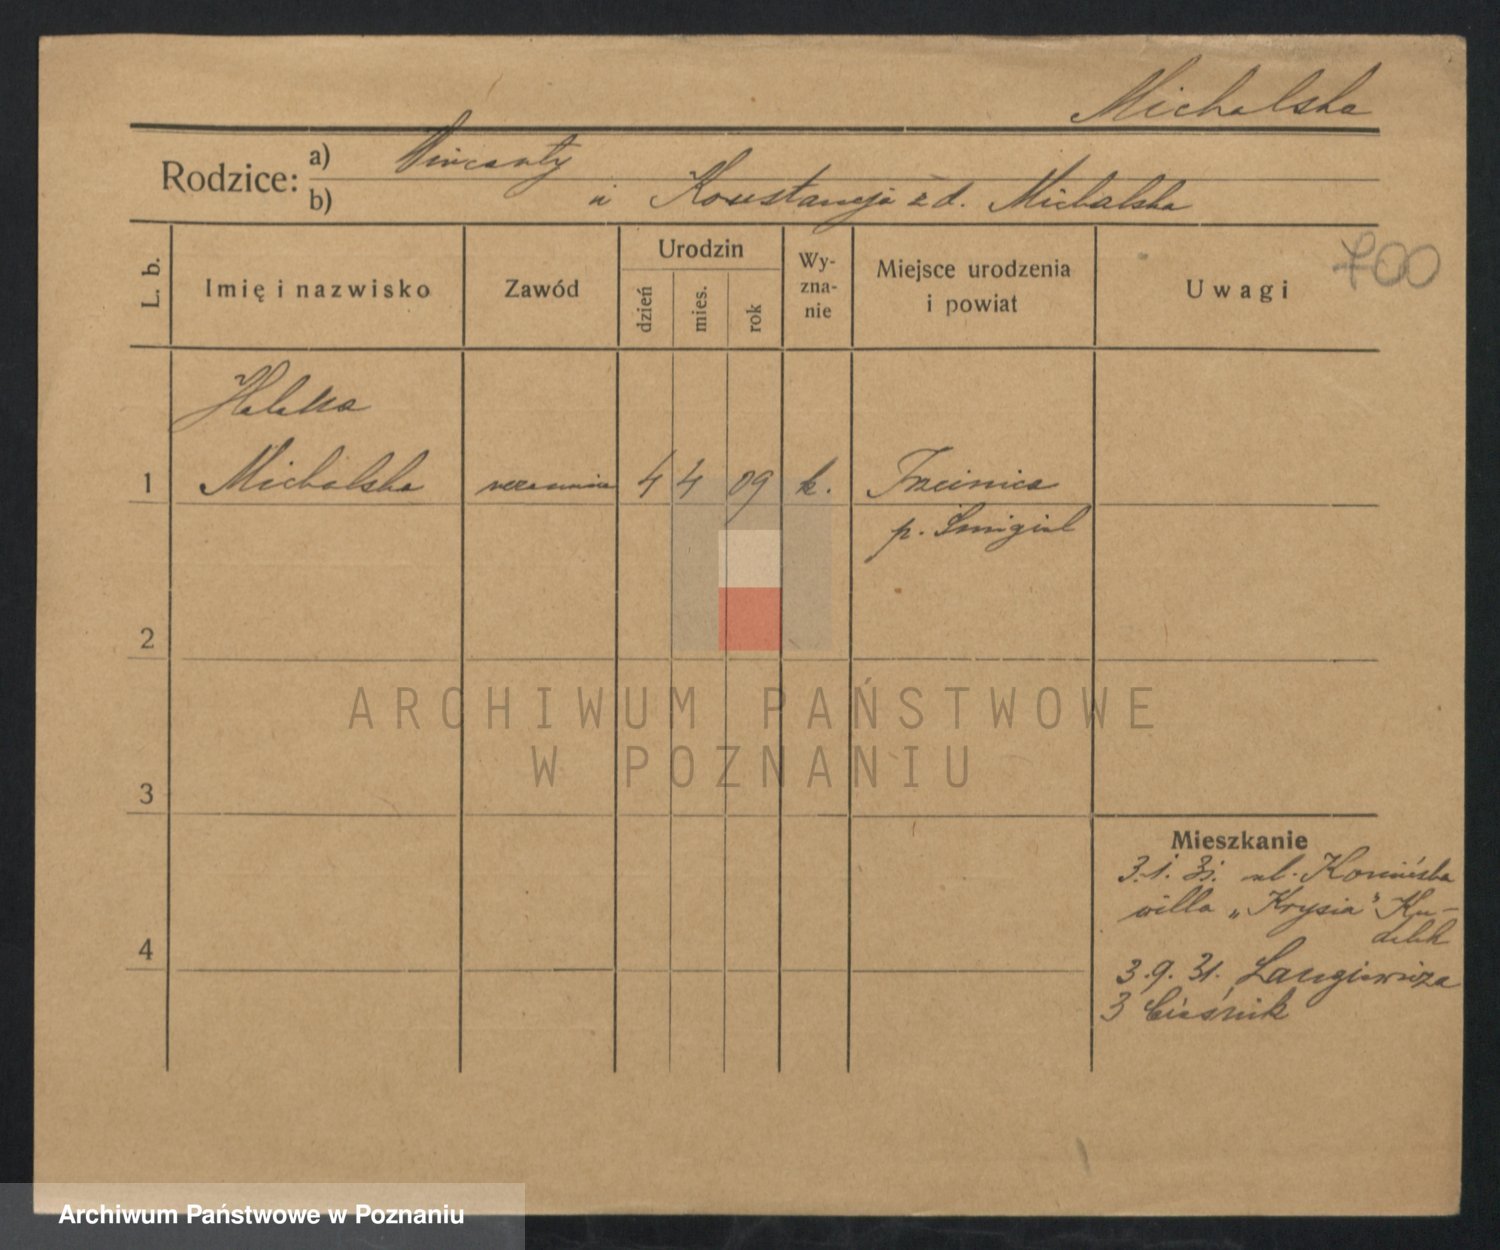 Michalska
Rodzice: a) Wincenty
b) i Konstancja z d. Michalska
L. b.
Imię i nazwisko
Zawód
Urodzin
dzień
mies.
rok
Wy-
zna-
nie
Miejsce urodzenia
i powiat
Uwagi
700
Michalska
1
4 4 09 k.
p. Śmigiel
2
3
4
Mieszkanie
3.1.31. ul.
willa „Krysia" Ku-
delik
3.9.31. Langiewicza
3 Cieśnik
ARCHIWUM PAŃSTWOWE
W POZNANIU
Archiwum Państwowe w Poznaniu